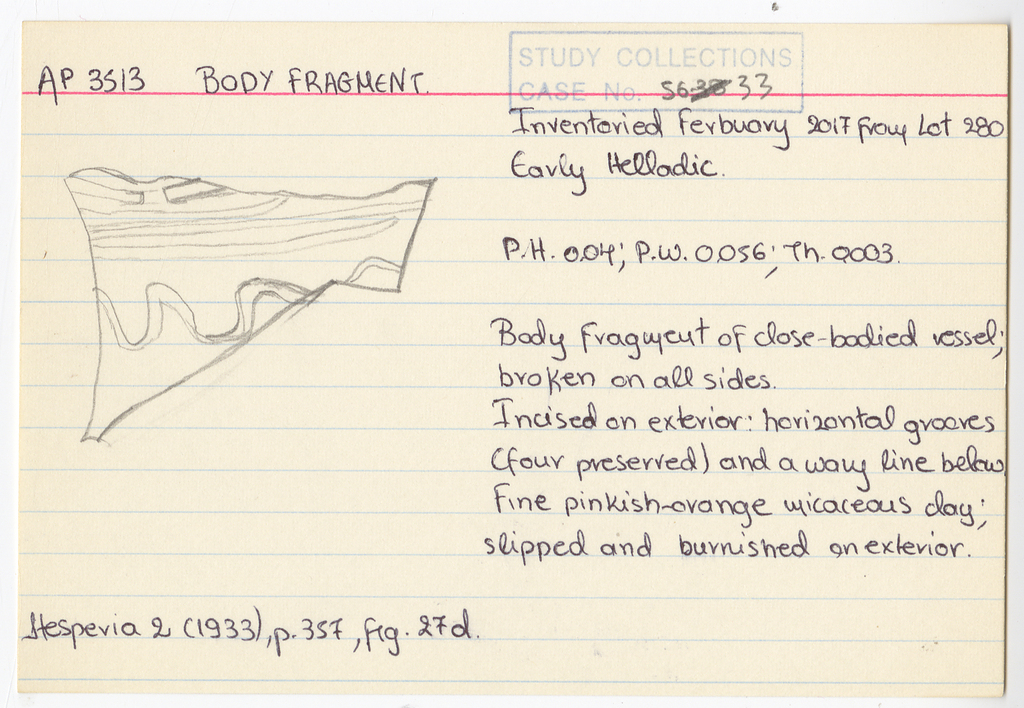 AP 3513 BODY FRAGMENT.
STUDY COLLECTIONS
CASE No. 56 33
Inventoried Ferbuary 2017 from Lot 280
Early Helladic.
P.H. 0.04; P.W. 0.056; Th. 0.003.
Body fragment of close-bodied vessel;
broken on all sides.
Incised on exterior: horizontal grooves
(four preserved) and a wavy line below
Fine pinkish-orange micaceous clay;
slipped and burnished on exterior.
Hesperia 2 (1933), p. 357, fig. 27d.